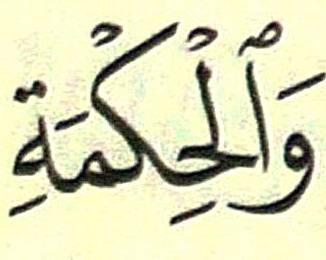 وَٱلْحِكْمَةِ